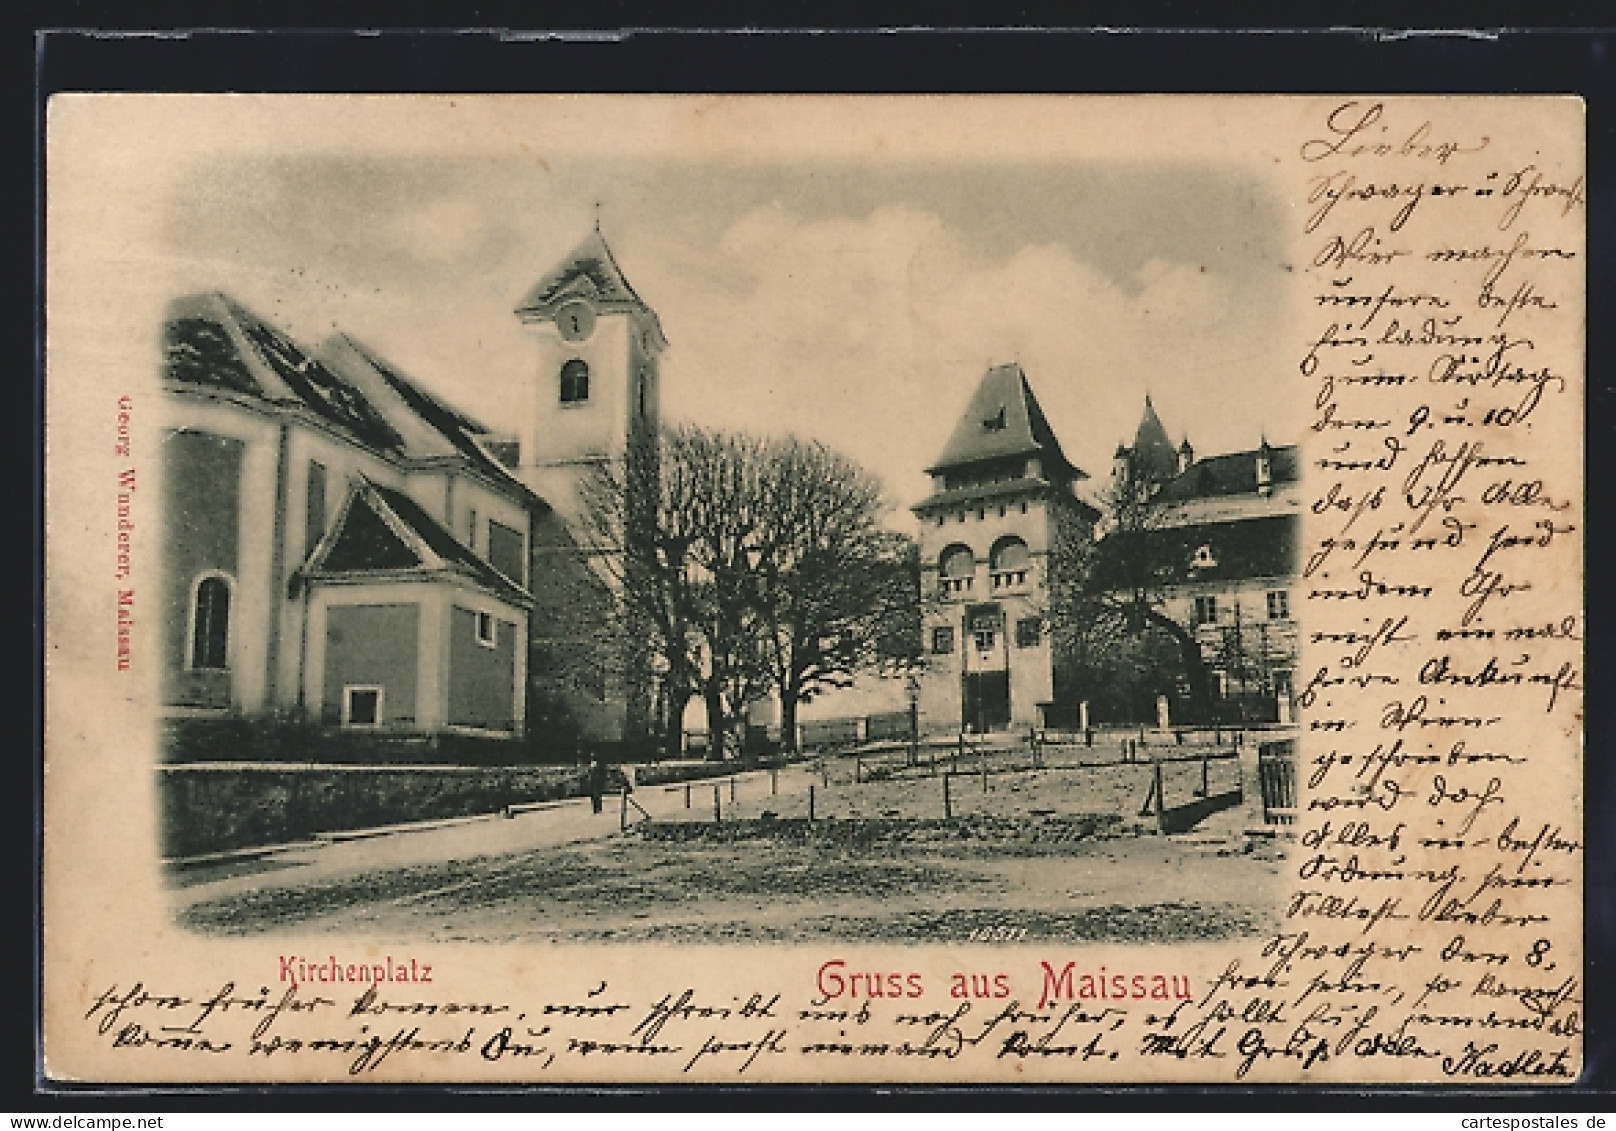 Lieber
Schwager u Schwest
Wier machen
unsere beste
Einladung
zum Kirtag
den 9. u. 10.
und hoffen
daß Ihr Alle
gesund seid
indem Ihr
nicht einmal
Eure Ankunft
in Wien
geschrieben
wird doch
Alles in bester
Ordnung sein
Solltest lieber
Schwager den 8.
frei sein, so kannst
schon früher komen, nur schreibt uns noch früher, es holt Euch jemand ab
kome wenigstens Du, wenn sonst niemand komt. Mit Gruß Alle
Kirchenplatz
Gruss aus Maissau
Georg Wunderer, Maissau
cartespostales de